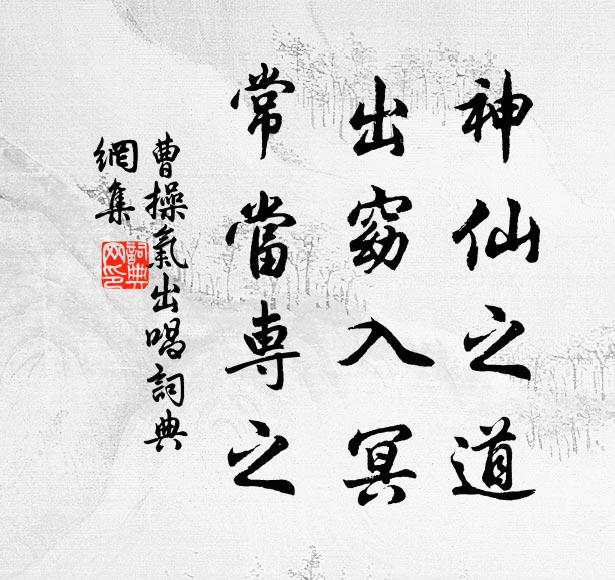 神仙之道
出窈入冥
常當專之
曹操氣出唱詞典
網集
詞典
网印